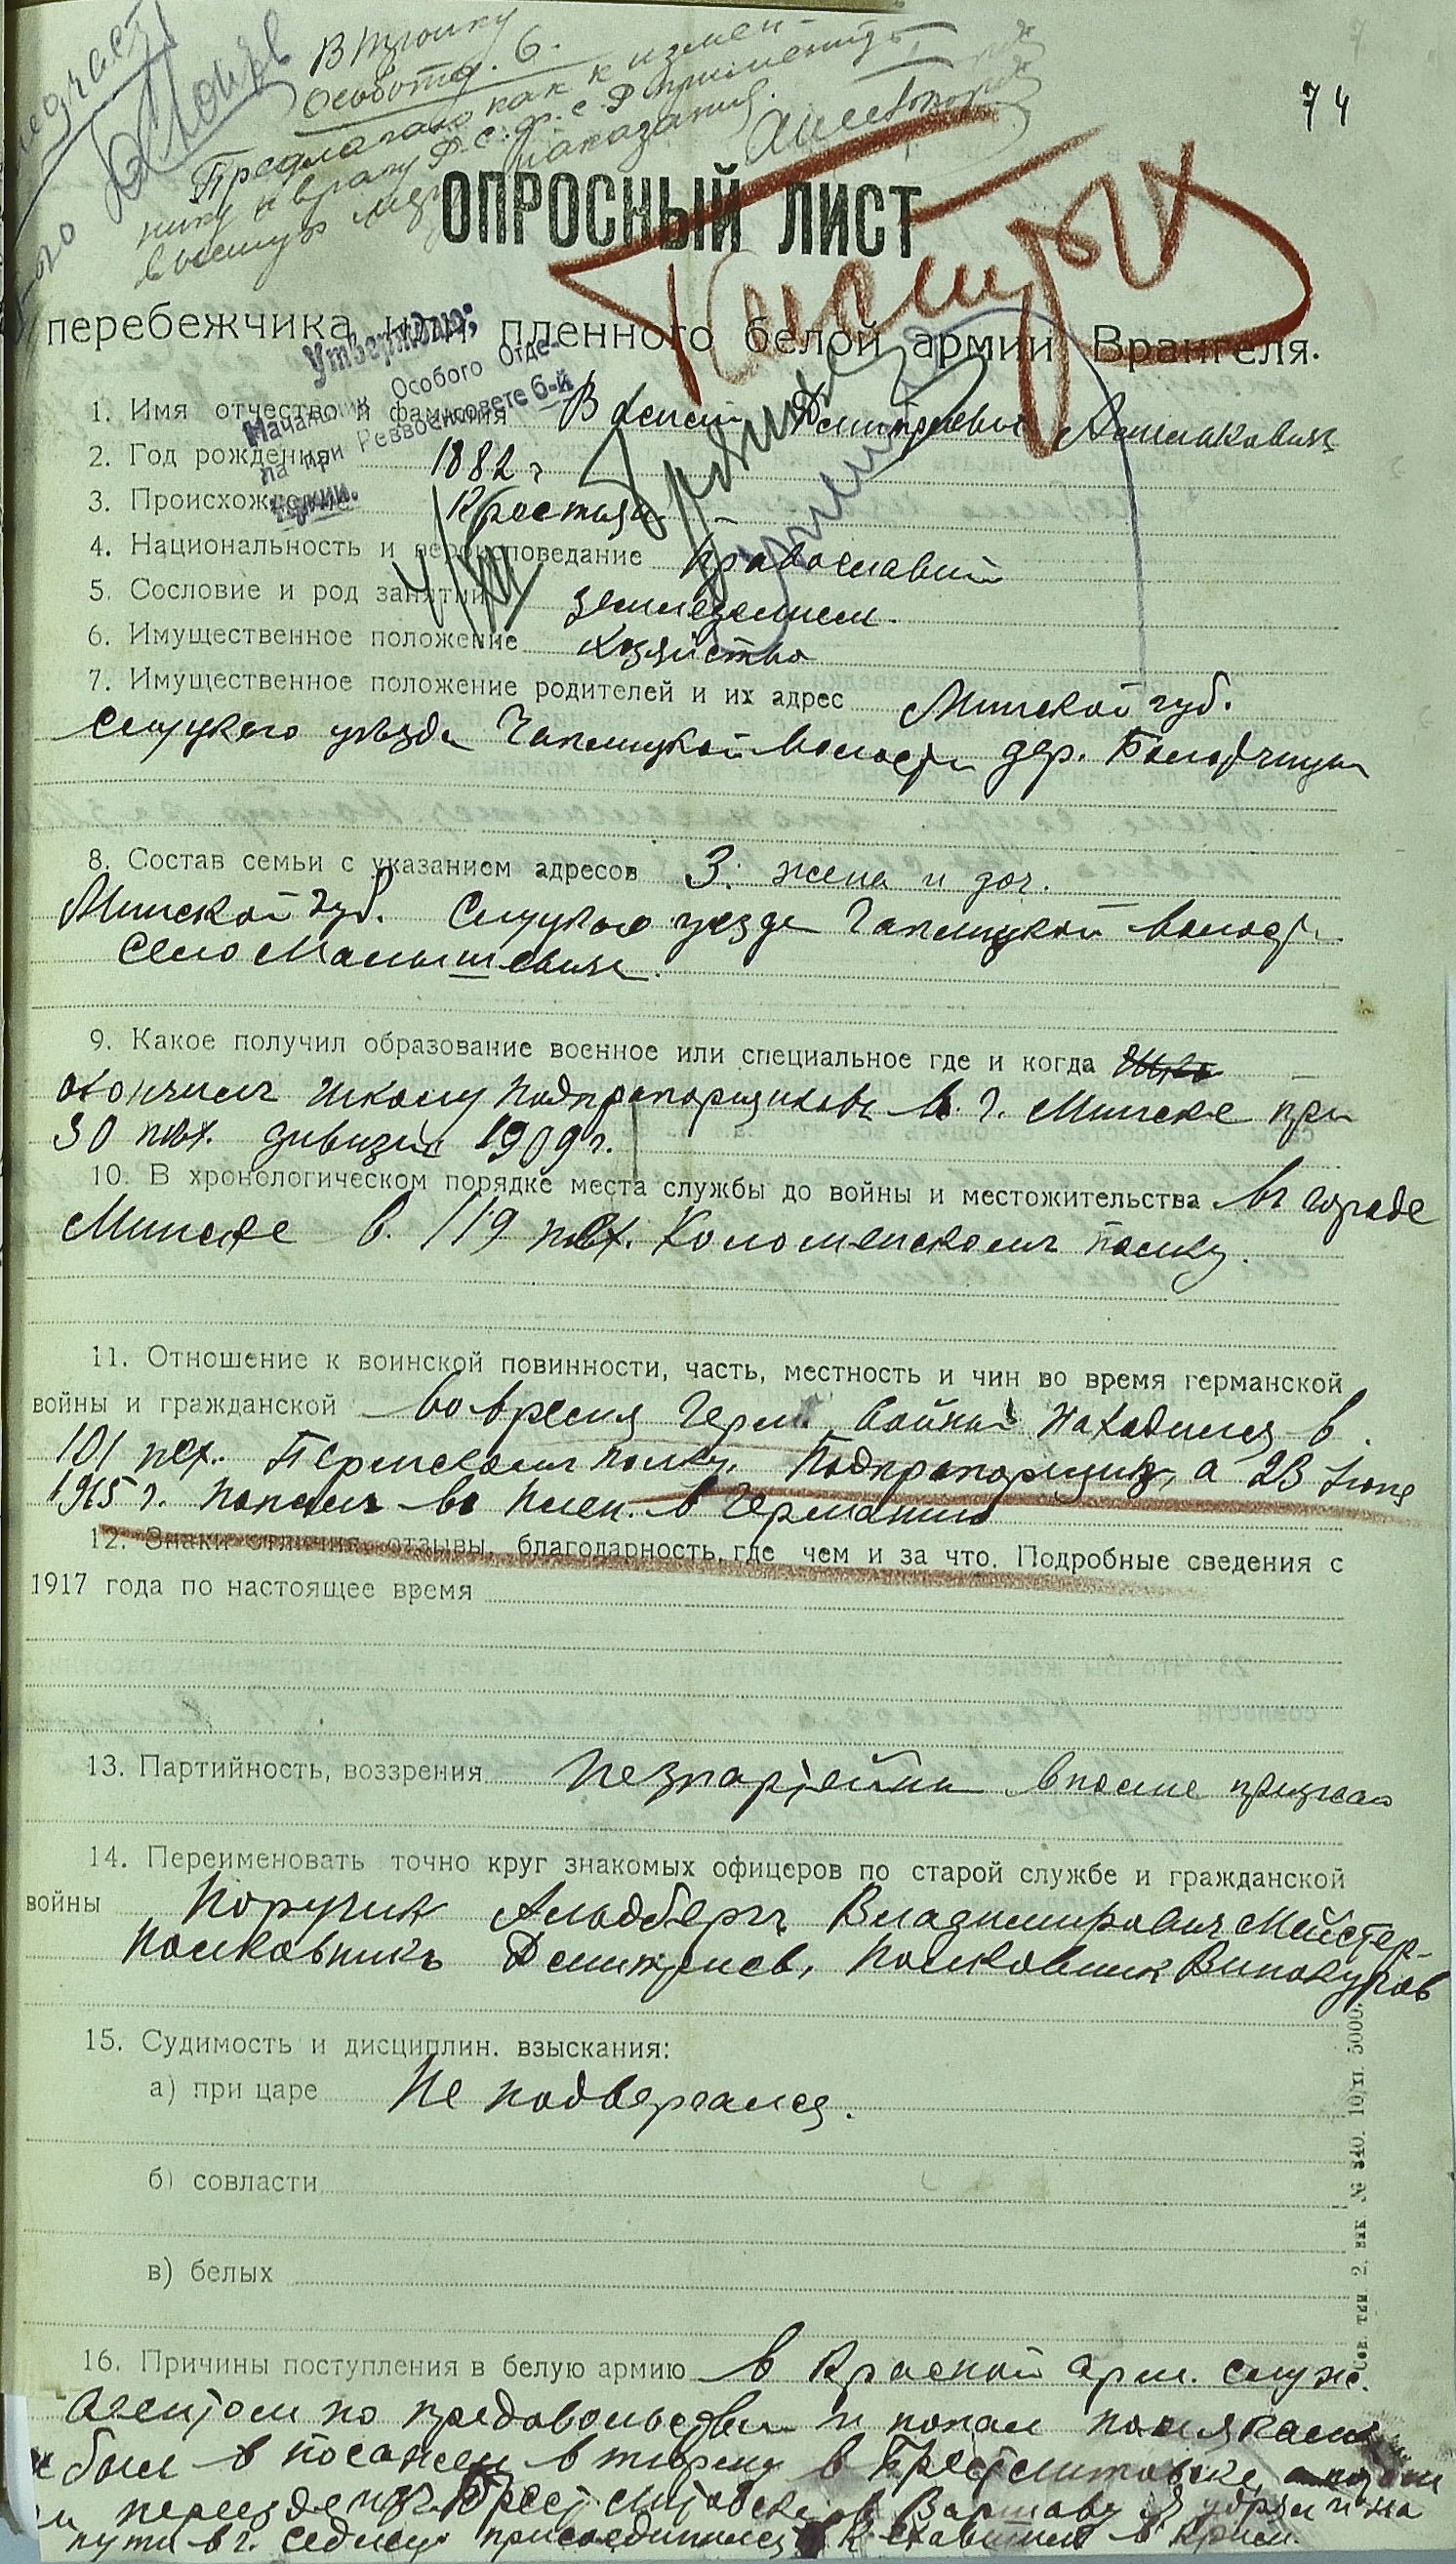 74
В тройку
Особотд. 6.
Предлагаю как к измен-
нику и врагу Р.С.Ф.С.Р применить
высшую меру наказания.
ОПРОСНЫЙ ЛИСТ
перебежчика или пленного белой армии Врангеля.
Утверждаю:
Начальник Особого Отде-
ла при Реввоенсовете 6-й
армии.
1. Имя отчество и фамилия Дмитриевич
2. Год рождения 1882 г
3. Происхождение Крестьян
4. Национальность и вероисповедание православный
5. Сословие и род занятий земледелием.
6. Имущественное положение хозяйство
7. Имущественное положение родителей и их адрес Минской губ.
Слуцкого уезда волости дер.
8. Состав семьи с указанием адресов 3: жена и доч.
Минской губ. Слуцкого уезда волости
село Малышевичи.
9. Какое получил образование военное или специальное где и когда
окончил школу подпрапорщиков в. г. Минске при
30 пех. дивизии 1909 г.
10. В хронологическом порядке места службы до войны и местожительства в городе
Минске в. 119 пех. Коломенском полку.
11. Отношение к воинской повинности, часть, местность и чин во время германской
войны и гражданской во время Герм. войны находился в
101 пех. Пермском полку. Подпрапорщик, а 23 Июня
1915 г. попал в плен. в Германию
12. Знаки отличия, отзывы, благодарность, где чем и за что. Подробные сведения с
1917 года по настоящее время
13. Партийность, воззрения
14. Переименовать точно круг знакомых офицеров по старой службе и гражданской
войны Поручик Владимирович Мейстер-
Полковникъ Дмитриев, Полковник Винокуров
15. Судимость и дисциплин. взыскания:
а) при царе Не подвергался.
б) совласти
в) белых
16. Причины поступления в белую армию в Красной арм. служ.
агентом по продовольствии и попал полякам
был посажен в тюрьму в Брестлитовске,
переезде из Брестлитовска в Варшаву я удрал и на
пути в г. присоединился к ехавшим в Крым.